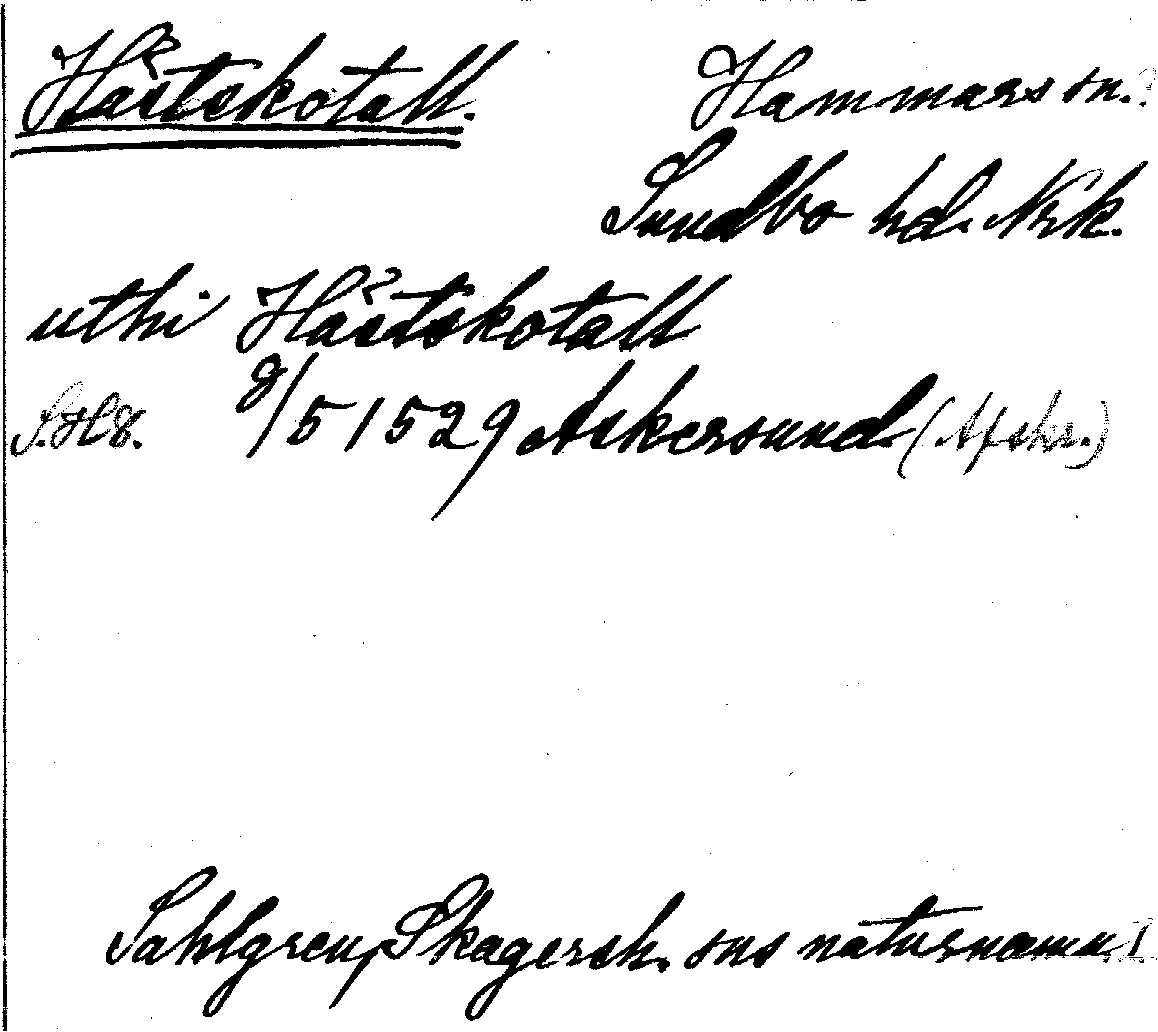 Håstskotall.
Hammars sn.?
Sundbo hd. Nrk.
uthi Håstskotall
8/5 1529 Askersund (Afskr.)
Sahlgren, Skagersh. sns naturnamn.